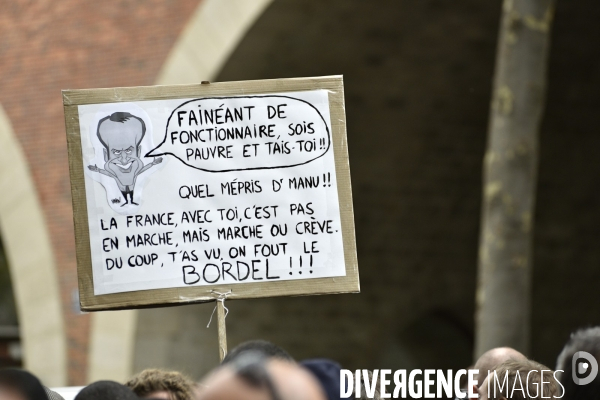 FAINÉANT DE
FONCTIONNAIRE, SOIS
PAUVRE ET TAIS-TOI !!
QUEL MÉPRIS D' MANU !!
LA FRANCE, AVEC TOI, C'EST PAS
EN MARCHE, MAIS MARCHE OU CRÈVE.
DU COUP, T'AS VU, ON FOUT LE
BORDEL !!!
DIVERGENCE IMAGES